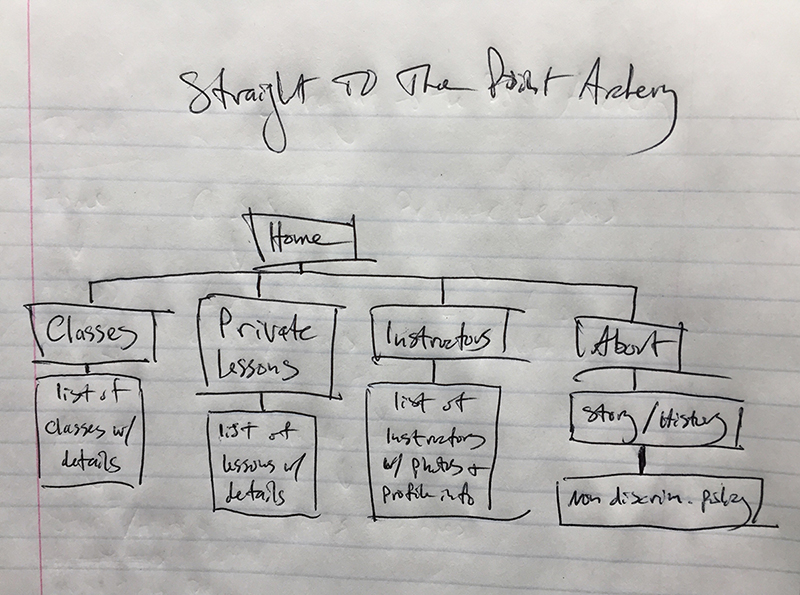 Straight To The Point Archery
Home
Classes
list of
classes w/
details
Private
Lessons
list of
lessons w/
details
Instructors
list of
Instructors
w/ photos +
profile info
About
Story/History
Non discrim. policy